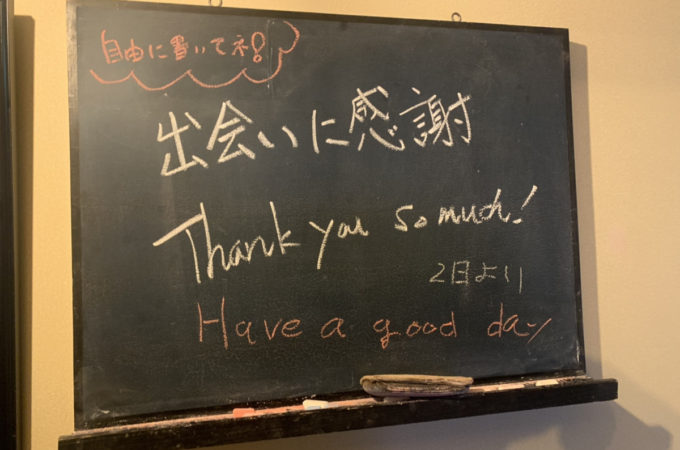 自由に書いてネ!
出会いに感謝
Thank you so much!
2日より
Have a good day